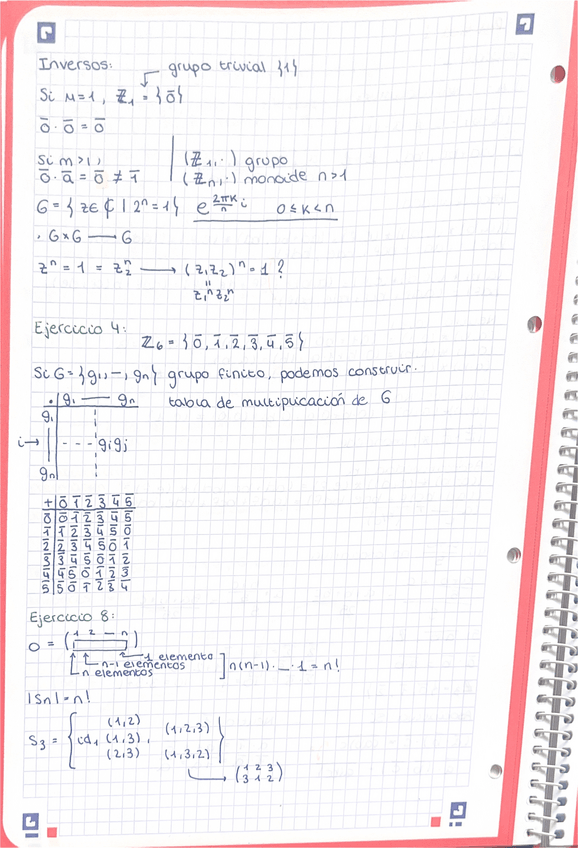 Inversos:
grupo trivial {1}
Si n=1, ℤ₁ = {0̄}
0̄ · 0̄ = 0̄
Si m>1,
0̄ · ā = 0̄ ≠ 1̄
(ℤ₁, ·) grupo
(ℤn, ·) monoide n>1
G = { z ∈ ℂ | zⁿ = 1 } e^(2πk/n i) 0 ≤ k < n
· G × G ⟶ G
zⁿ = 1 = z₂ⁿ ⟶ (z₁z₂)ⁿ = 1 ?
"
z₁ⁿ z₂ⁿ
Ejercicio 4:
ℤ₆ = { 0̄, 1̄, 2̄, 3̄, 4̄, 5̄ }
Si G = {g₁, —, gn} grupo finito, podemos construir.
tabla de multiplicación de G
· | g₁ — gn
g₁
i→ - - - gigj
gn
+ | 0̄ 1̄ 2̄ 3̄ 4̄ 5̄
0̄ | 0̄ 1̄ 2̄ 3̄ 4̄ 5̄
1̄ | 1̄ 2̄ 3̄ 4̄ 5̄ 0̄
2̄ | 2̄ 3̄ 4̄ 5̄ 0̄ 1̄
3̄ | 3̄ 4̄ 5̄ 0̄ 1̄ 2̄
4̄ | 4̄ 5̄ 0̄ 1̄ 2̄ 3̄
5̄ | 5̄ 0̄ 1̄ 2̄ 3̄ 4̄
Ejercicio 8:
σ = (1 2 — n)
1 elemento
n-1 elementos
n elementos
] n(n-1) · — · 1 = n!
|Sn| = n!
S₃ = { id, (1,2) (1,3), (2,3) (1,2,3) (1,3,2) }
⟶ (1 2 3
3 1 2)